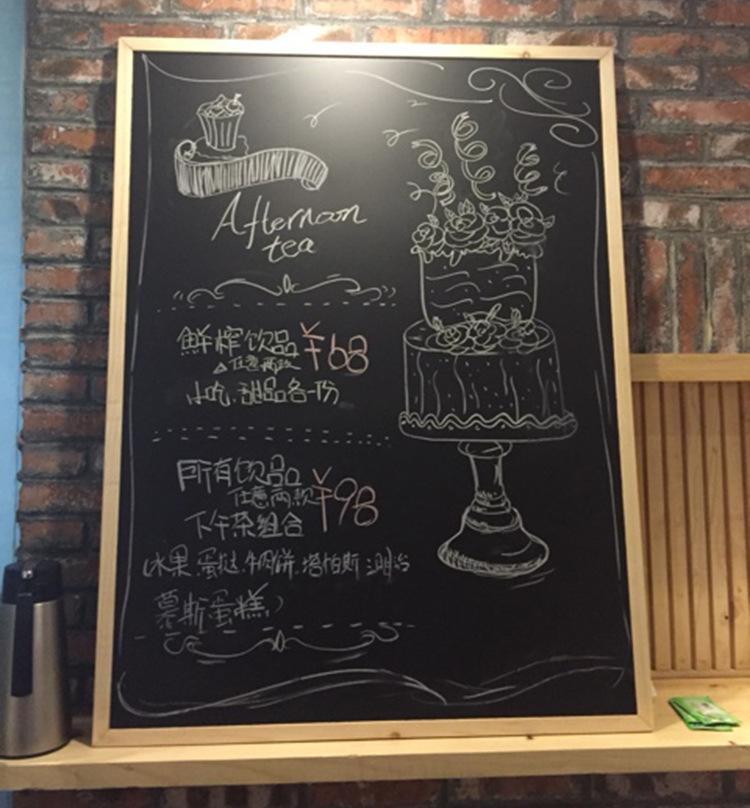 Afternoon
tea
鲜榨饮品 ¥68
任意两款
小吃.甜品各一份
所有饮品
任意两款 ¥98
下午茶组合
(水果.蛋挞.牛肉饼.塔帕斯.三明治
慕斯蛋糕)